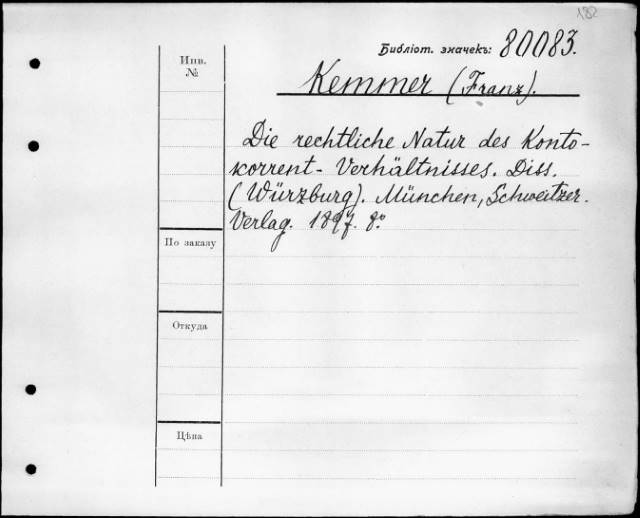 182
Библіот. значекъ: 80083.
Инв.
№
Kemmer (Franz).
Die rechtliche Natur des Konto-
korrent-Verhältnisses. Diss.
(Würzburg). München, Schweitzer.
Verlag. 1897. 8º.
По заказу
Откуда
Цѣна